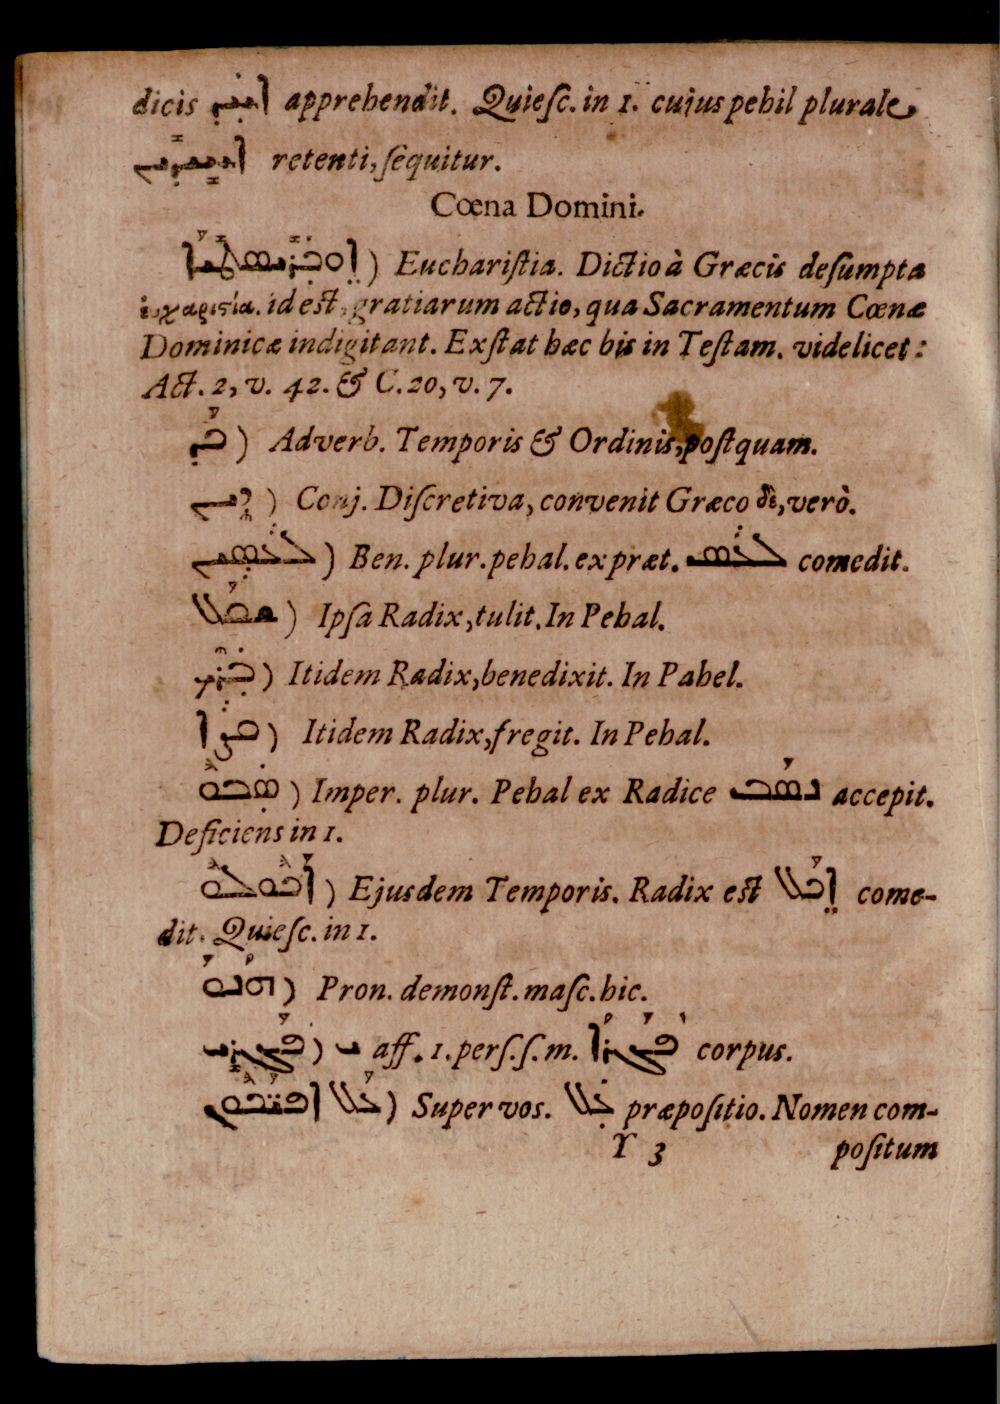 dicis ܐܚܕ apprehendit. Quiesc. in 1. cujus pehil plurale
retenti, sequitur.
Cœna Domini.
) Eucharistia. Dictio à Græcis desumpta
ἐυχαριςία. id est, gratiarum actio, qua Sacramentum Cœnæ
Dominicæ indigitant. Exstat hæc bis in Testam. videlicet:
Act. 2, v. 42. & C. 20, v. 7.
ܟܕ ) Adverb. Temporis & Ordinis, postquam.
ܕܝܢ ) Conj. Discretiva, convenit Græco δὲ, verò.
ܠܥܣܝܢ ) Ben. plur. pehal. ex præt. ܠܥܣ comedit.
ܫܩܠ ) Ipsa Radix, tulit. In Pehal.
ܒܪܟ ) Itidem Radix, benedixit. In Pahel.
ܩܨܐ ) Itidem Radix, fregit. In Pehal.
ܣܒܘ ) Imper. plur. Pehal ex Radice ܢܣܒ accepit.
Deficiens in 1.
ܐܟܘܠܘ ) Ejusdem Temporis. Radix est ܐܟܠ come-
dit. Quiesc. in 1.
ܗܢܘ ) Pron. demonst. masc. hic.
ܦܓܪܝ ) ܝ aff. 1. pers. s. m. ܦܓܪܐ corpus.
ܥܠ ܐܦܝܟܘܢ ) Super vos. ܥܠ præpositio. Nomen com-
Y 3 positum